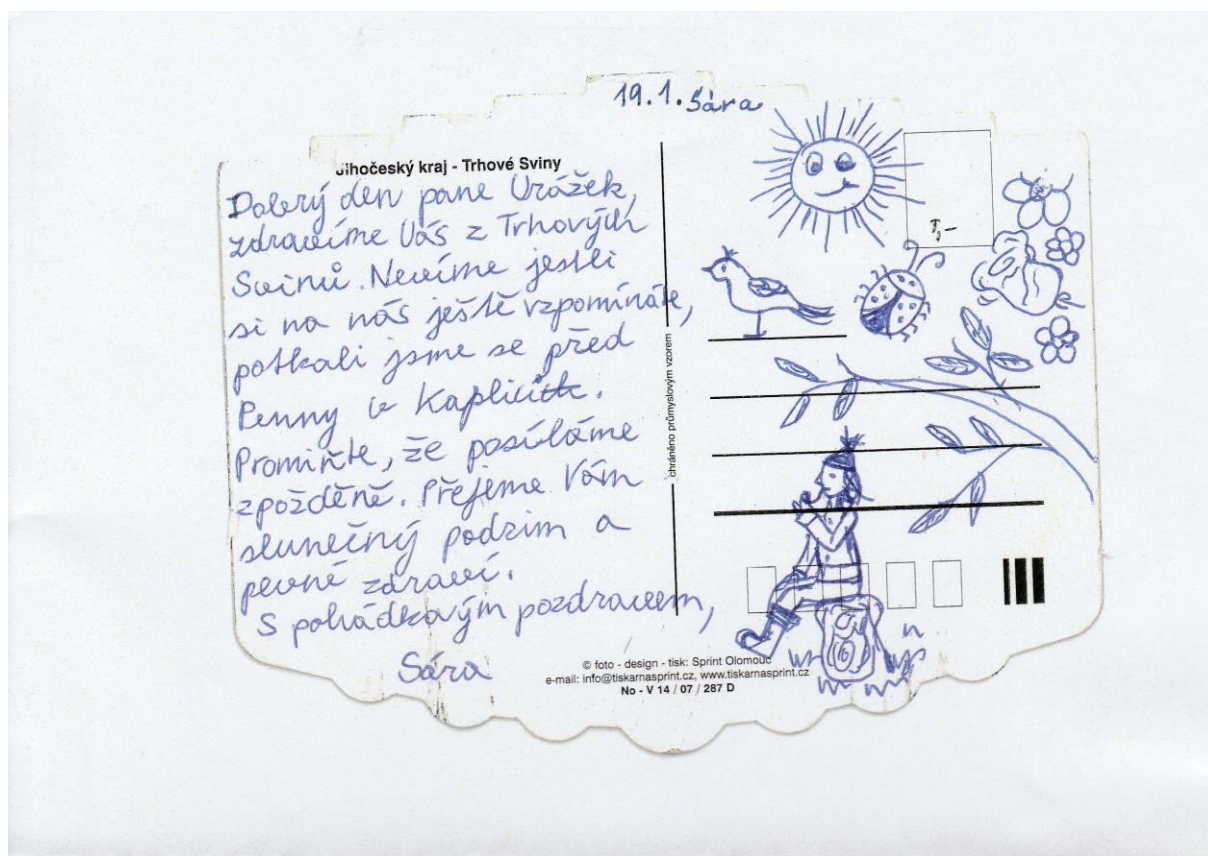 19.1. Sára
Jihočeský kraj - Trhové Sviny
Dobrý den pane Urážek,
zdravíme Vás z Trhových
Svinů. Nevíme jestli
si na nás ještě vzpomínáte,
potkali jsme se před
Penny v Kaplici.
Promiňte, že posíláme
zpožděně. Přejeme Vám
slunečný podzim a
pevné zdraví.
S pohádkovým pozdravem,
Sára
7,-
chráněno průmyslovým vzorem
© foto - design - tisk: Sprint Olomouc
e-mail: info@tiskarnasprint.cz, www.tiskarnasprint.cz
No - V 14 / 07 / 287 D